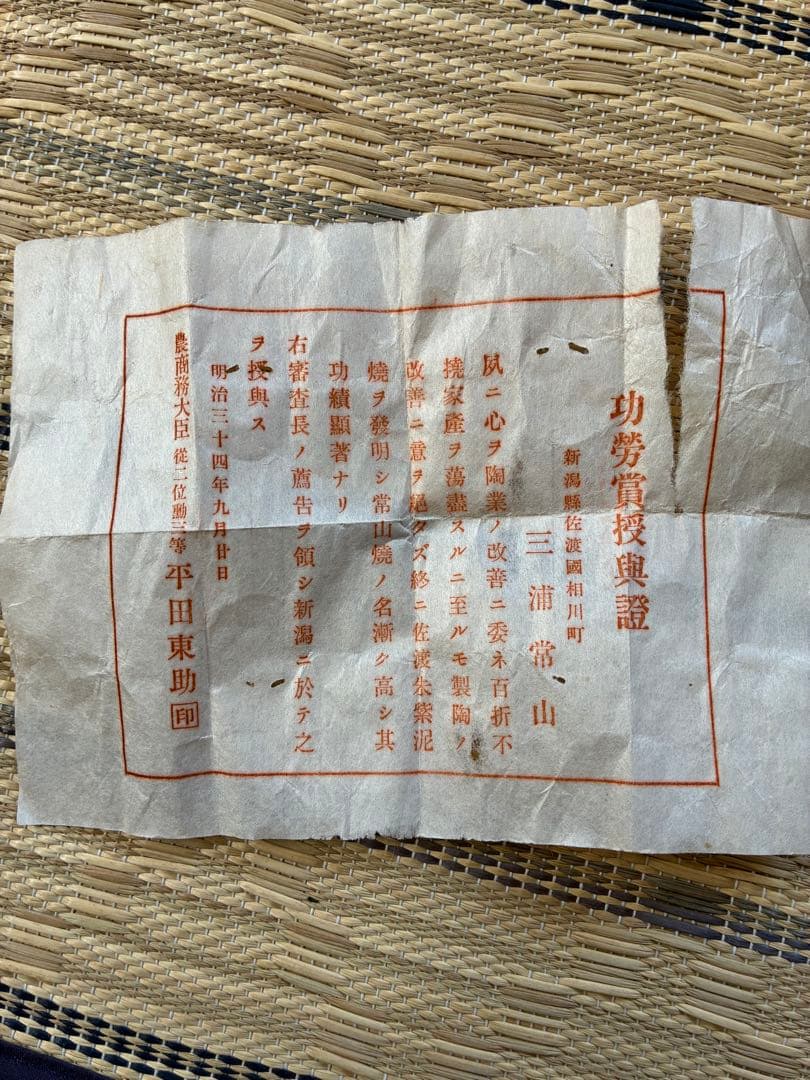 功勞賞授與證
新潟縣佐渡國相川町
三浦常山
夙ニ心ヲ陶業ノ改善ニ委ネ百折不
撓家產ヲ蕩盡スルニ至ルモ製陶ノ
改善ニ意ヲ絕タズ終ニ佐渡朱紫泥
燒ヲ發明シ常山燒ノ名漸ク高シ其
功績顯著ナリ
右審査長ノ薦告ヲ領シ新潟ニ於テ之
ヲ授與ス
明治三十四年九月廿日
農商務大臣 從二位勳三等 平田東助 印